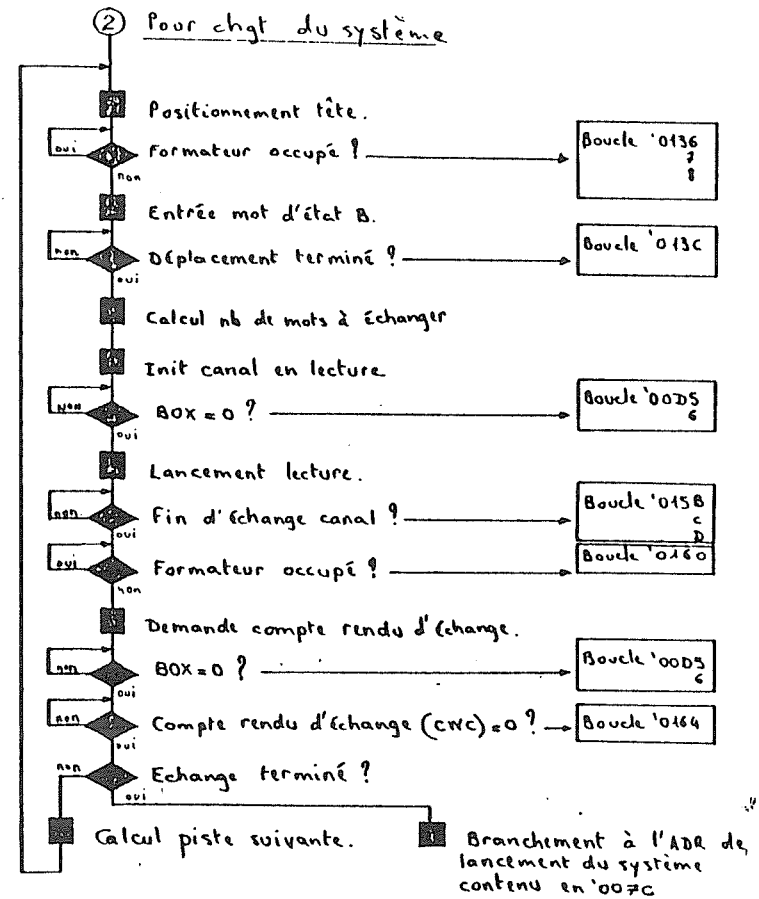 2 Pour chgt du système
Positionnement tête.
oui Formateur occupé ? Boucle '0136
7
8
non
Entrée mot d'état B.
non Déplacement terminé ? Boucle '013C
oui
Calcul nb de mots à échanger
Init canal en lecture
Non BOX = 0 ? Boucle '00D5
6
oui
Lancement lecture.
non Fin d'échange canal ? Boucle '015B
C
D
oui
oui Formateur occupé ? Boucle '0160
non
Demande compte rendu d'échange.
non BOX = 0 ? Boucle '00D5
6
oui
non Compte rendu d'échange (CNC) = 0 ? Boucle '0164
oui
non Echange terminé ?
oui
Calcul piste suivante. Branchement à l'ADR de
lancement du système
contenu en '007C